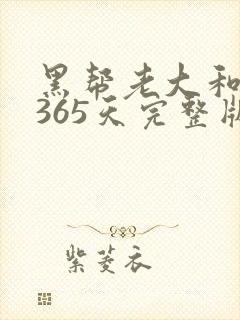 黑帮老大和
365天完整版
紫菱衣